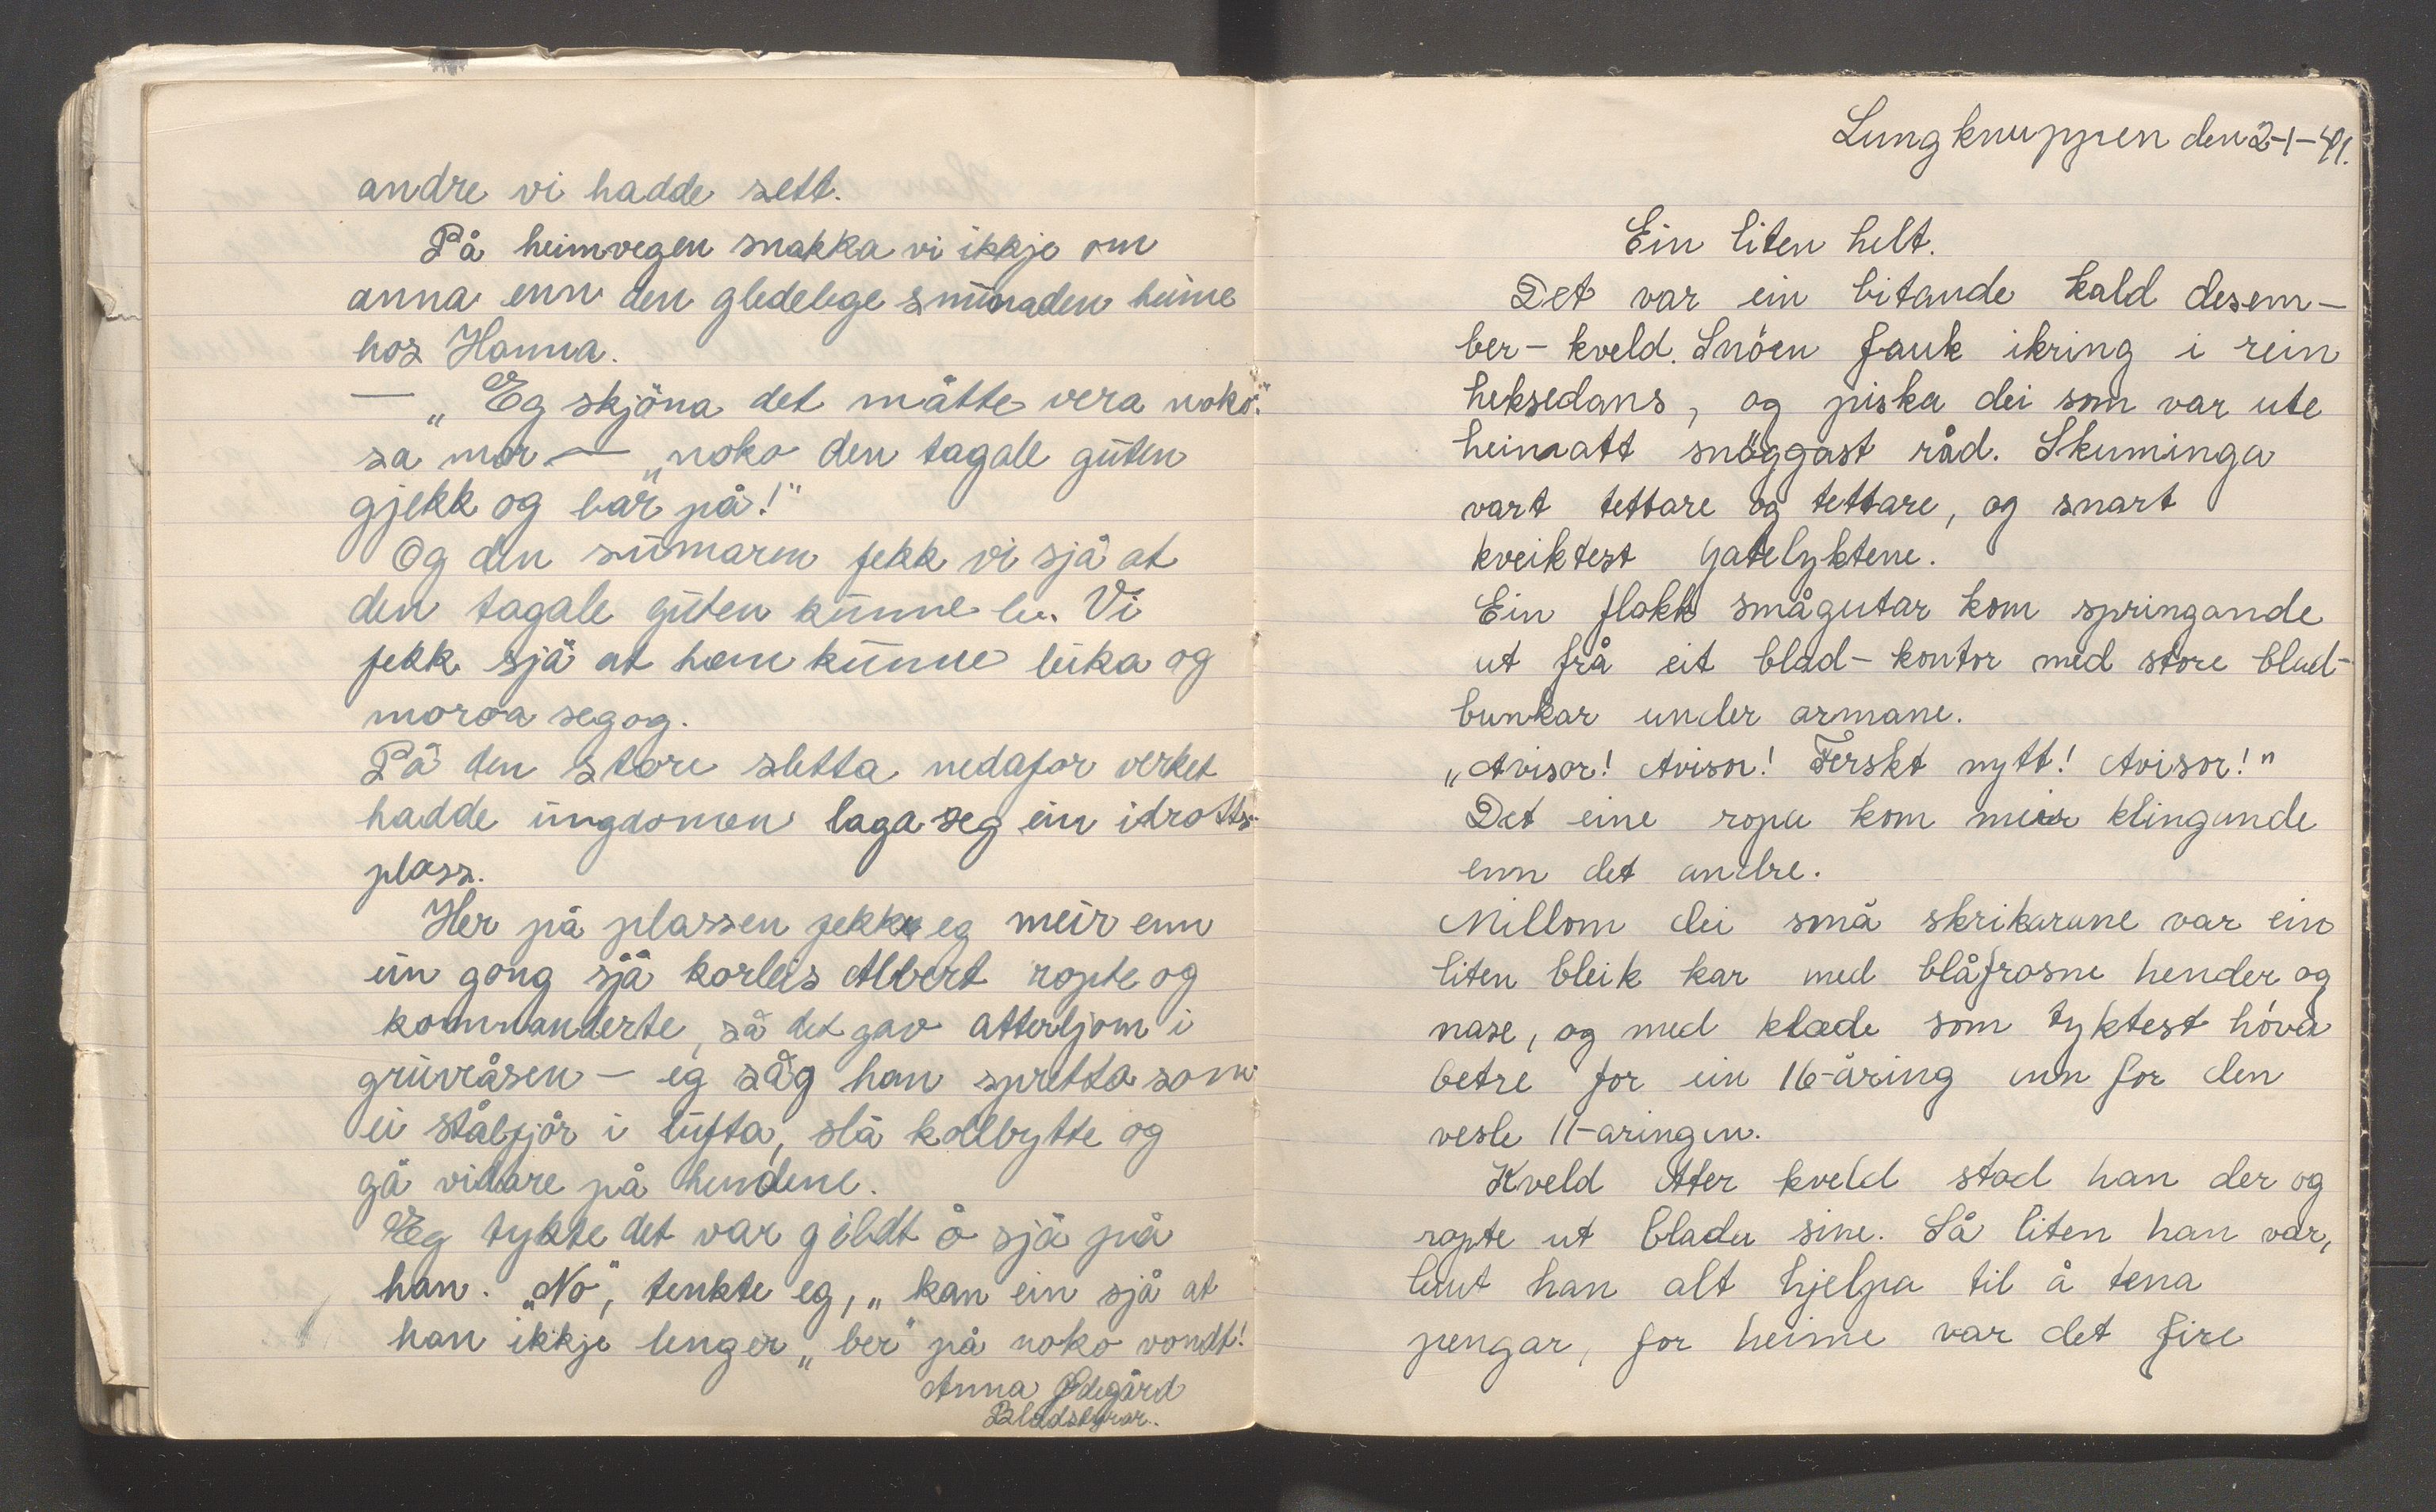 andre vi hadde sett.
På heimvegen snakka vi ikkje om
anna enn den gledelege smånaden heime
hos Hanna.
— „Eg skjöna det måtte vera noko."
sa mor — „noko den tagale guten
gjekk og bar på!"
Og den sumaren fekk vi sjå at
den tagale guten kunne le. Vi
fekk sjå at han kunne leika og
moroa seg og.
På den store sletta nedafor verket
hadde ungdomen laga seg ein idrotts-
plass.
Her på plassen fekk eg meir enn
ein gong sjå korleis Albert ropte og
kommanderte, så det gav atterljom i
gruveåsen — eg såg han spretta som
ei stålfjör i lufta, slå kollbytte og
gå vidare på hendene.
Eg tykte det var gildt å sjå på
han. „No", tenkte eg, „kan ein sjå at
han ikkje lenger „ber" på noko vondt!
Anna Ødegård
Bladstyrar.
Lungknuppen den 2-1-41.
Ein liten helt.
Det var ein bitande kald desem-
ber- kveld. Snöen fauk ikring i rein
heksedans, og piska dei som var ute
heimatt snöggast råd. Skuminga
vart tettare og tettare, og snart
kveiktest gatelyktene.
Ein flokk smågutar kom springande
ut frå eit blad- kontor med store blad-
bunkar under armane.
„Avisor! Avisor! Ferskt nytt! Avisor!"
Det eine ropa kom meir klingande
enn det andre.
Millom dei små skrikarane var ein
liten bleik kar med blåfrosne hender og
nase, og med klæde som tyktest höva
betre for ein 16-åring enn for den
vesle 11-aringen.
Kveld etter kveld stod han der og
ropte ut blada sine. Så liten han var,
laut han alt hjelpa til å tena
pengar, for heime var det fire